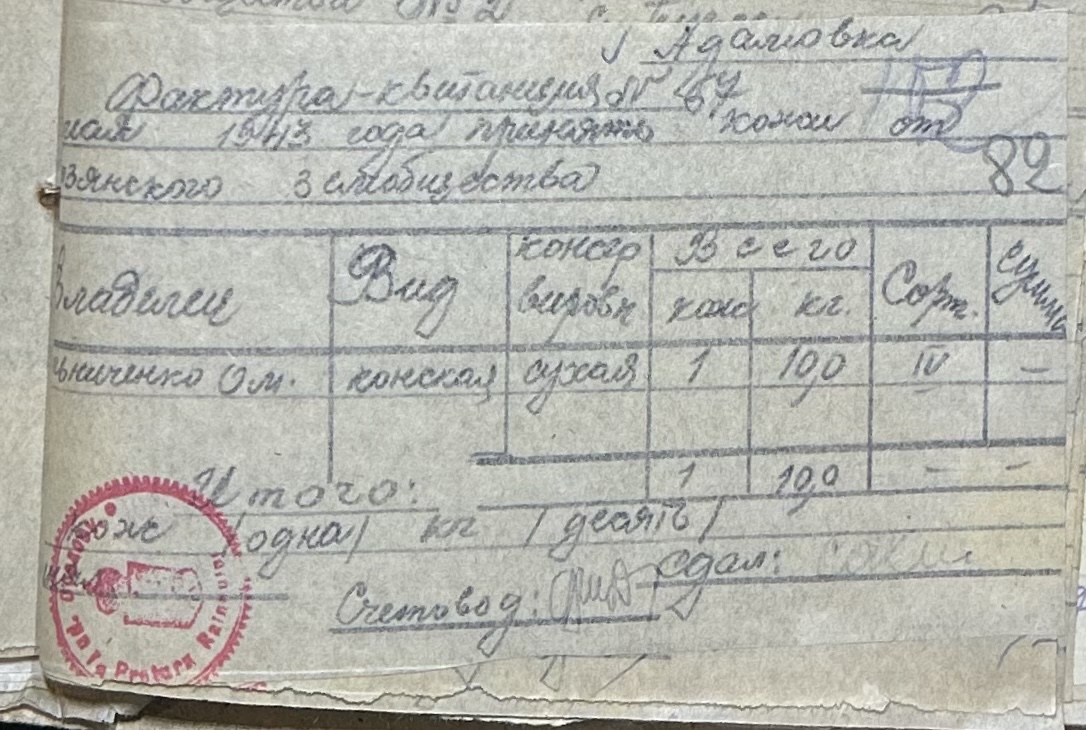 с. Адамовка
Фактура-квитанция № 67
мая 1943 года принято кожи от
взянского Земобщества
82
Владелец Вид консер вировк Всего кож кг. Сорт. сумма
ьниченко О.М. конская сухая 1 10,0 IV —
1 10,0 — —
Итого:
кож /одна/ кг /десять/
Счетовод: сдал:
Protura Rain